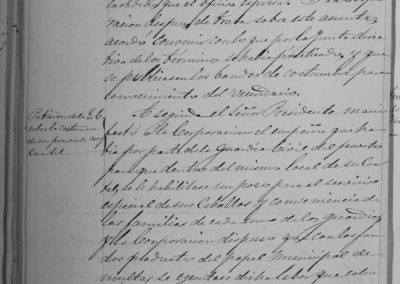 que el oficio espresa.
racion despues de tratar sobre este asunto,
acordó convenir con lo que por la Junta direc
tiva de los términos se habia practicado, y que
se publicasen los bandos de costumbre para
conocimiento del vecindario.
Peticion de la G. C.
sobre la costruccion
de un pozo en el
Cuartel
A seguida el Señor Presidente mani
festó á la Corporacion el empeño que ha
bia por parte de la Guardia Civil del puesto
para que dentro del mismo local de su Cuar
tel, se le habilitase un pozo para el servicio
especial de sus Caballos y conveniencia de
las familias de cada uno de los guardias
y la Corporacion dispuso que con los fon
dos productos del papel Municipal de
multas, se egecutase dicha labor que